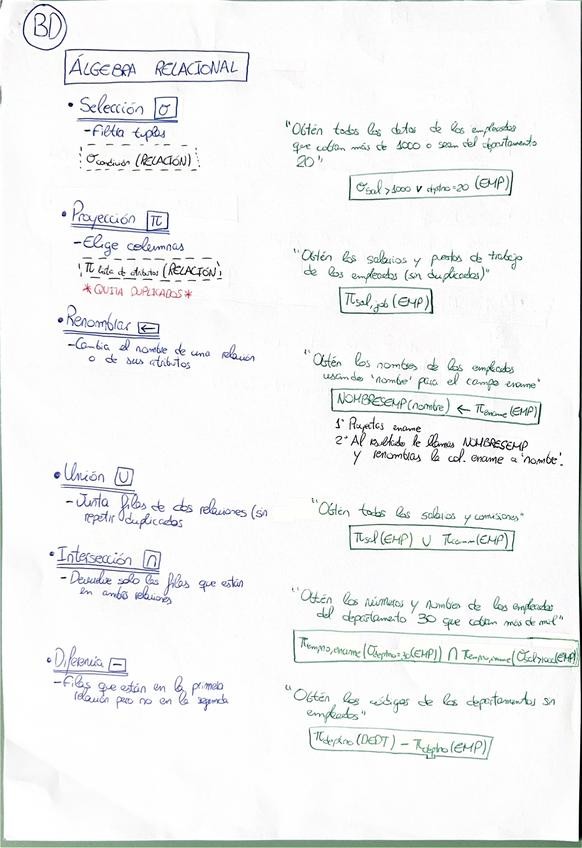 BD
ÁLGEBRA RELACIONAL
• Selección σ
- Filtra tuplas
σcondición (RELACIÓN)
"Obtén todos los datos de los empleados
que cobran más de 1000 o sean del departamento
20"
σsal > 1000 ∨ deptno = 20 (EMP)
• Proyección π
- Elige columnas
π lista de atributos (RELACIÓN)
* QUITA DUPLICADOS *
"Obtén los salarios y puestos de trabajo
de los empleados (sin duplicados)"
πsal, job (EMP)
• Renombrar ←
- Cambia el nombre de una relación
o de sus atributos
"Obtén los nombres de los empleados
usando 'nombre' para el campo ename"
NOMBRESEMP(nombre) ← πename (EMP)
1º Proyectas ename
2º Al resultado le llamas NOMBRESEMP
y renombras la col. ename a 'nombre'.
• Unión ∪
- Junta filas de dos relaciones (sin
repetir duplicados
"Obtén todos los salarios y comisiones"
πsal(EMP) ∪ πcomm(EMP)
• Intersección ∩
- Devuelve solo las filas que están
en ambas relaciones
"Obtén los números y nombres de los empleados
del departamento 30 que cobran más de mil"
πempno, ename (σdeptno=30(EMP)) ∩ πempno, ename (σsal>1000(EMP)
• Diferencia −
- Filas que están en la primera
relación pero no en la segunda
"Obtén los códigos de los departamentos sin
empleados"
πdeptno (DEPT) − πdeptno (EMP)